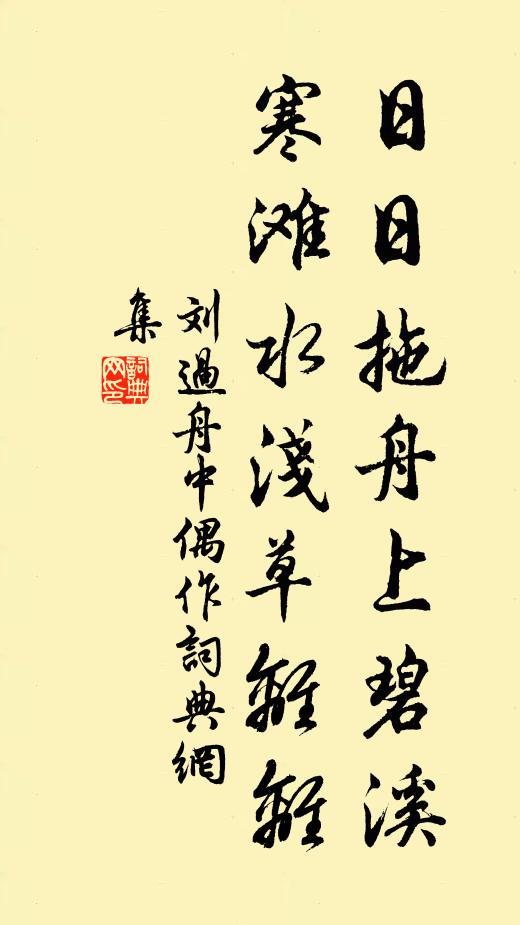 日日拖舟上碧溪
寒滩水淺草離離
刘過舟中偶作詞典網
集
詞典網印